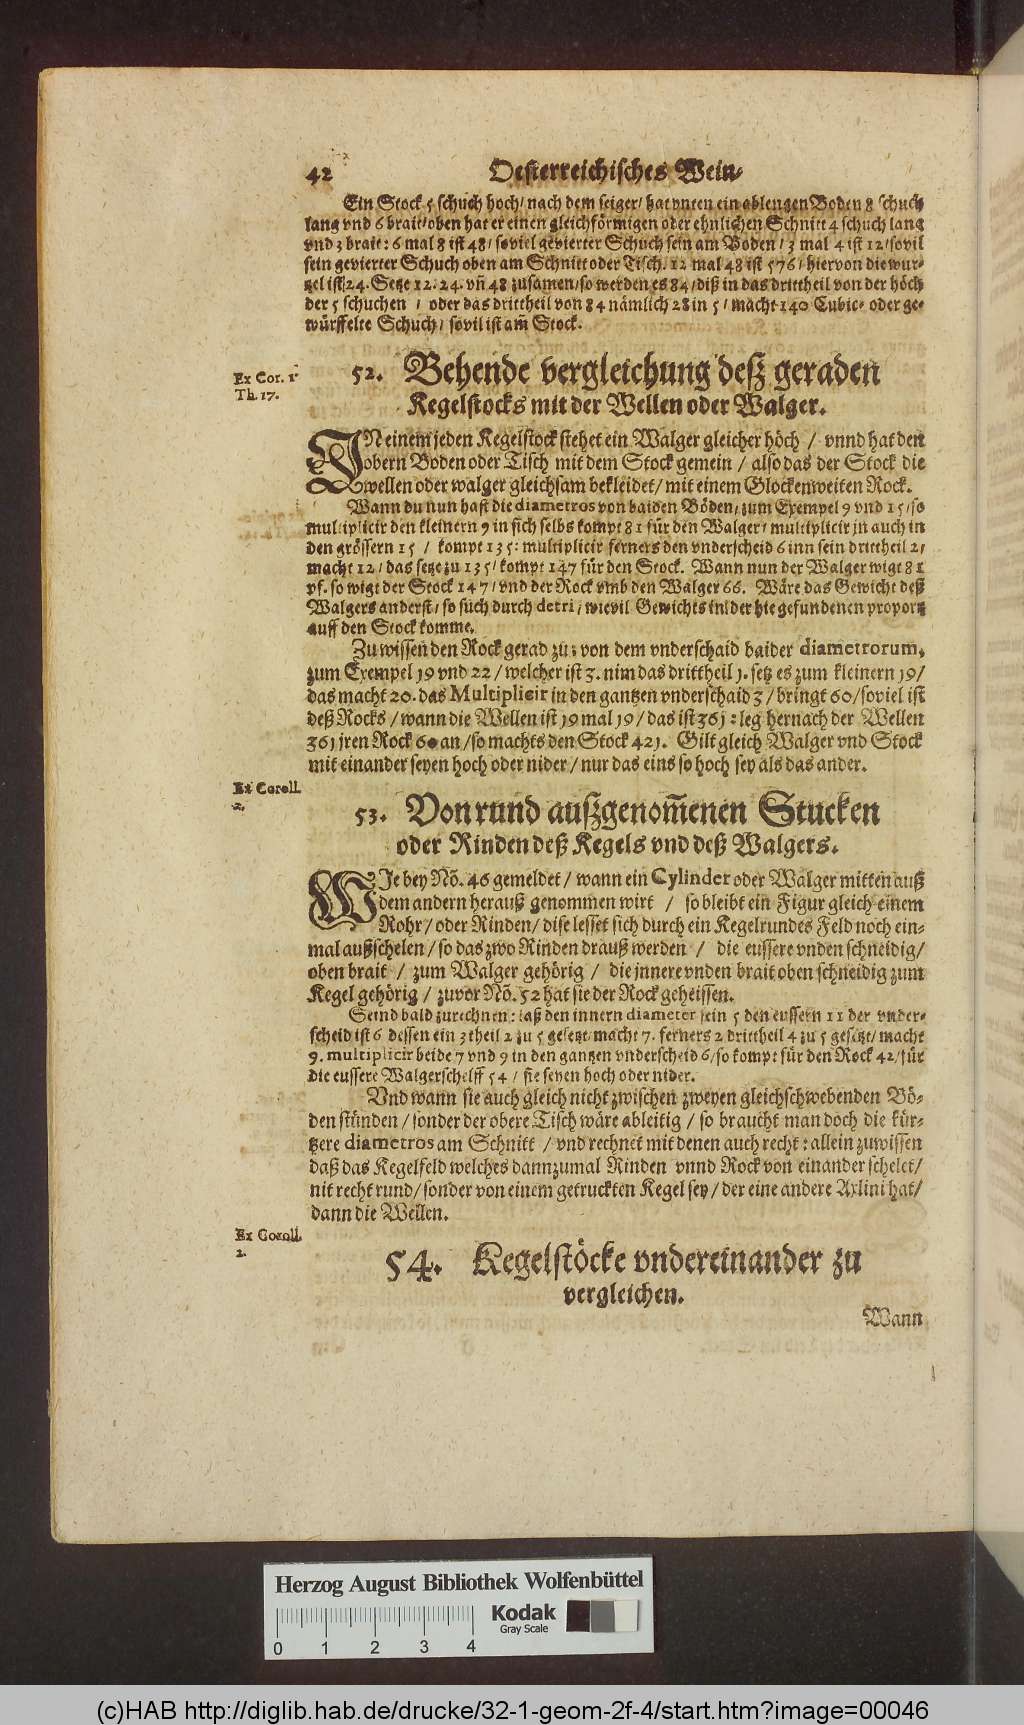 42 Oesterreichisches Wein-
Ein Stock 5 schuch hoch/ nach dem seiger/ hat vnten ein ablengen Boden 8 schuch
lang vnd 6 brait/ oben hat er einen gleichförmigen oder ehnlichen Schnitt 4 schuch lang
vnd 3 brait: 6 mal 8 ist 48/ soviel gevierter Schuch sein am Boden/ 3 mal 4 ist 12/ sovil
sein gevierter Schuch oben am Schnitt oder Tisch. 12 mal 48 ist 576/ hiervon die wur-
tzel ist 24. Setze 12. 24. vñ 48 zusamen/ so werden es 84/ diß in das drittheil von der höch
der 5 schuchen / oder das drittheil von 84 nämlich 28 in 5/ macht 140 Cubic- oder ge-
würffelte Schuch/ sovil ist am̃ Stock.
Ex Cor. 1
Th. 17.
52. Behende vergleichung deß geraden
Kegelstocks mit der Wellen oder Walger.
IN einem jeden Kegelstock stehet ein Walger gleicher höch / vnnd hat den
obern Boden oder Tisch mit dem Stock gemein / also das der Stock die
wellen oder walger gleichsam bekleidet/ mit einem Glockenweiten Rock.
Wann du nun hast die diametros von baiden Böden/ zum Exempel 9 vnd 15/ so
multiplicir den kleinern 9 in sich selbs kompt 81 für den Walger/ multiplicir jn auch in
den grössern 15 / kompt 135: multiplicir ferners den vnderscheid 6 inn sein drittheil 2/
macht 12/ das setze zu 135/ kompt 147 für den Stock. Wann nun der Walger wigt 81
pf. so wigt der Stock 147/ vnd der Rock vmb den Walger 66. Wäre das Gewicht deß
Walgers anderst/ so such durch detri/ wievil Gewichts in der hie gefundenen proportz
auff den Stock komme.
Zu wissen den Rock gerad zu: von dem vnderschaid baider diametrorum,
zum Exempel 19 vnd 22/ welcher ist 3. nim das drittheil 1. setz es zum kleinern 19/
das macht 20. das Multiplicir in den gantzen vnderschaid 3/ bringt 60/ soviel ist
deß Rocks/ wann die Wellen ist 19 mal 19/ das ist 361: leg hernach der Wellen
361 jren Rock 60 an/ so machts den Stock 421. Gilt gleich Walger vnd Stock
mit einander seyen hoch oder nider/ nur das eins so hoch sey als das ander.
Ex Coroll.
2.
53. Von rund außgenom̃enen Stucken
oder Rinden deß Kegels vnd deß Walgers.
WIe bey Nõ. 46 gemeldet/ wann ein Cylinder oder Walger mitten auß
dem andern herauß genommen wirt / so bleibt ein Figur gleich einem
Rohr/ oder Rinden/ dise lesset sich durch ein Kegelrundes Feld noch ein-
mal außschelen/ so das zwo Rinden drauß werden / die eussere vnden schneidig/
oben brait / zum Walger gehörig / die jnnere vnden brait oben schneidig zum
Kegel gehörig / zuvor Nõ. 52 hat sie der Rock geheissen.
Seind bald zurechnen: laß den innern diameter sein 5 den eussern 11 der vnder-
scheid ist 6 dessen ein 3theil 2 zu 5 gesetzt/ macht 7. ferners 2 drittheil 4 zu 5 gesetzt/ macht
9. multiplicir beide 7 vnd 9 in den gantzen vnderscheid 6/ so kompt für den Rock 42/ für
die eussere Walgerschelff 54 / sie seyen hoch oder nider.
Vnd wann sie auch gleich nicht zwischen zweyen gleichschwebenden Bö-
den stünden/ sonder der obere Tisch wäre ableitig / so braucht man doch die kür-
tzere diametros am Schnitt / vnd rechnet mit denen auch recht: allein zuwissen
daß das Kegelfeld welches dannzumal Rinden vnnd Rock von einander schelet/
nit recht rund/ sonder von einem getruckten Kegel sey/ der eine andere Axlini hat/
dann die Wellen.
Ex Coroll.
2.
54. Kegelstöcke vndereinander zu
vergleichen.
Wann
Herzog August Bibliothek Wolfenbüttel
0 1 2 3 4
Kodak
Gray Scale
(c)HAB http://diglib.hab.de/drucke/32-1-geom-2f-4/start.htm?image=00046